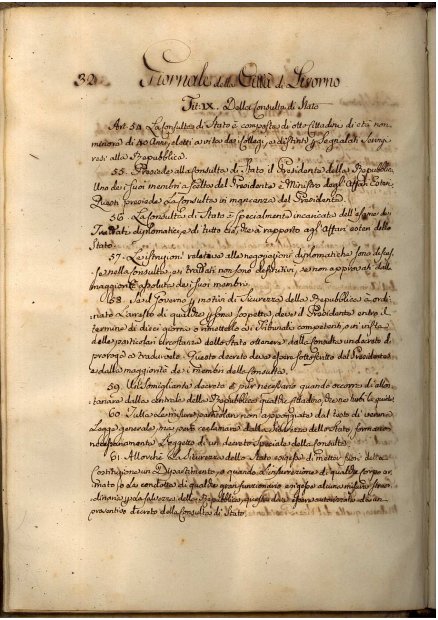 32 Giornale della Città di Livorno
Tit: IX. Della Consulta di Stato
Art. 54. La Consulta di Stato è composta di otto Cittadini di età non
minore di 40 Anni, eletti a vita dai Collegj, e distinti p segnalati servigj
resi alla Repubblica.
55. Presede alla Consulta di Stato il Presidente della Repubblica.
Uno dei suoi membri a scelta del Presidente è Ministro degli Affari Esteri.
Questi presiede la Consulta in mancanza del Presidente.
56. La Consulta di Stato è specialmente incaricata dell'esame dei
Trattati diplomatici, e di tutto ciò, che à rapporto agli Affari esteri dello
Stato.
57. Le istruzioni relative alle negoziazioni diplomatiche sono discus-
se nella Consulta, ed i trattati non sono definitivi, se non approvati dalla
maggiorità assoluta dei suoi membri.
58. Se il Governo p motivi di Sicurezza della Repubblica à ordi-
nato l'arresto di qualche persona sospetta, deve il Presidente entro il
termine di dieci giorni o rimetterlo ai Tribunali competenti, o in vista
delle particolari circostanze dello Stato ottenere dalla Consulta un decreto di
proroga a tradurvelo. Questo decreto deve essere sottoscritto dal Presidente
e dalla maggiorità dei membri della Consulta.
59. Un Somigliante decreto è pur necessario quando occorre di allon-
tanare dalla centrale della Repubblica qualche cittadino, che ne turbi la quiete.
60. Tutte le misure particolari non appoggiate dal testo di veruna
Legge generale, ma però reclamate dalla salvezza dello Stato, formano
necessariamente l'oggetto di un decreto speciale della Consulta.
61. Allorchè la Sicurezza dello Stato esige di metter fuori della
Costituzione un Dipartimento, o quando l'insurrezione di qualche corpo ar-
mato, o la condotta di qualche gran funzionario esigesse alcuna misura straor-
dinaria p la salvezza della Repubblica, queste devono essere autorizzate da un
preventivo decreto della Consulta di Stato.